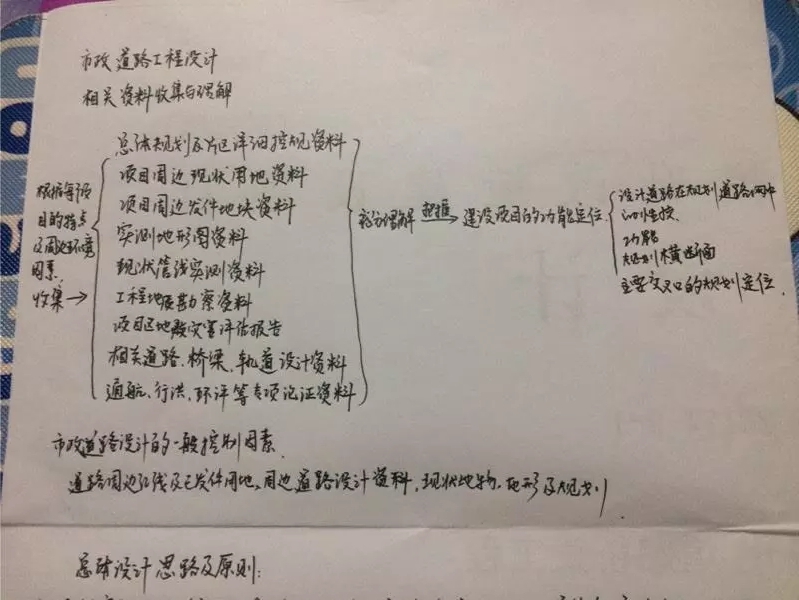 市政道路工程设计
相关资料收集与理解
根据每项
目的特点
及周边环境
因素,
收集→
总体规划及片区详细控规资料
项目周边现状用地资料
项目周边发件地块资料
实测地形图资料
现状管线实测资料
工程地质勘察资料
项目区地质灾害评估报告
相关道路、桥梁、轨道设计资料
通航、行洪、环评等专项论证资料
充分理解
把握
建设项目的功能定位.
设计道路在规划道路网中
的性质
功能
规划横断面
主要交叉口的规划定位.
市政道路设计的一般控制因素.
道路周边红线及已发件用地、周边道路设计资料,现状地物、地形及规划
总体设计思路及原则: